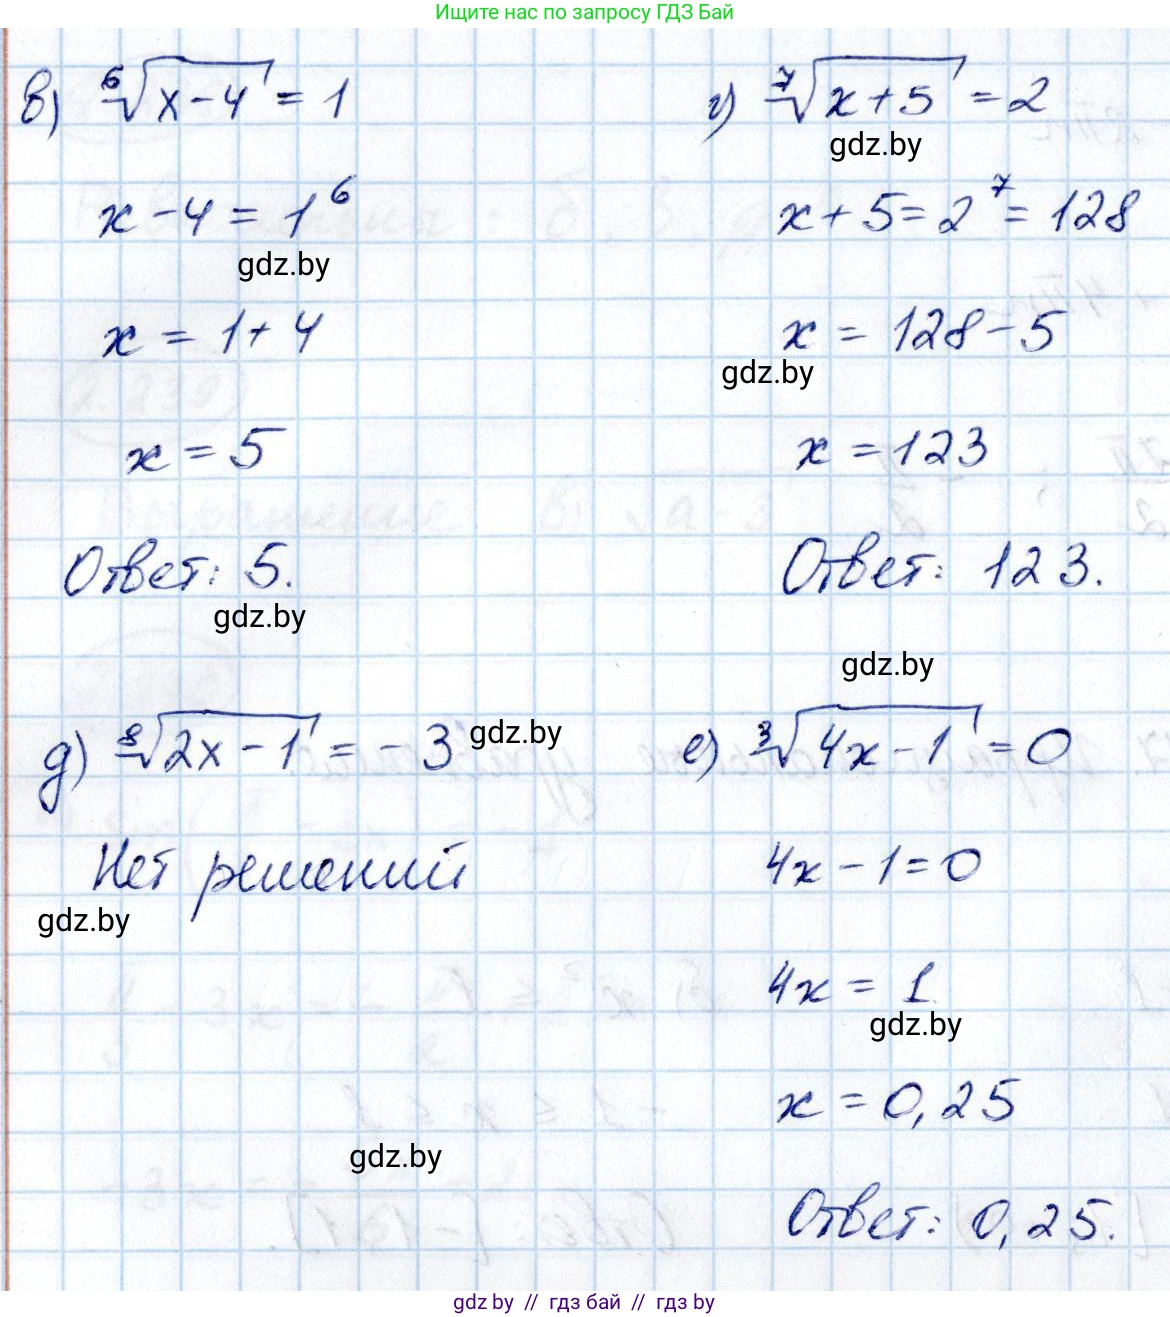 Ищите нас по запросу ГДЗ Бай
в) ⁶√(x-4) = 1
x-4 = 1⁶
gdz.by
x = 1+4
x = 5
Ответ: 5.
gdz.by
г) ⁷√(x+5) = 2
gdz.by
x+5=2⁷= 128
x = 128-5
gdz.by
x = 123
Ответ: 123.
gdz.by
д) ⁸√(2x-1) = -3
gdz.by
Нет решений
gdz.by
gdz.by
е) ³√(4x-1) = 0
4x-1=0
4x = 1
gdz.by
x = 0,25
Ответ: 0,25.
gdz.by // гдз бай // гдз by